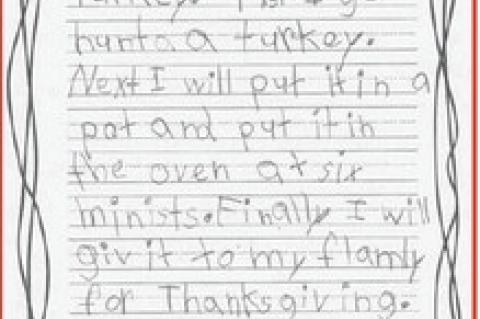 turkey. First I go
hunt a turkey.
Next I will put it in a
pot and put it in
the oven at six
minists. Finally I will
giv it to my flamly
for Thanksgiving.